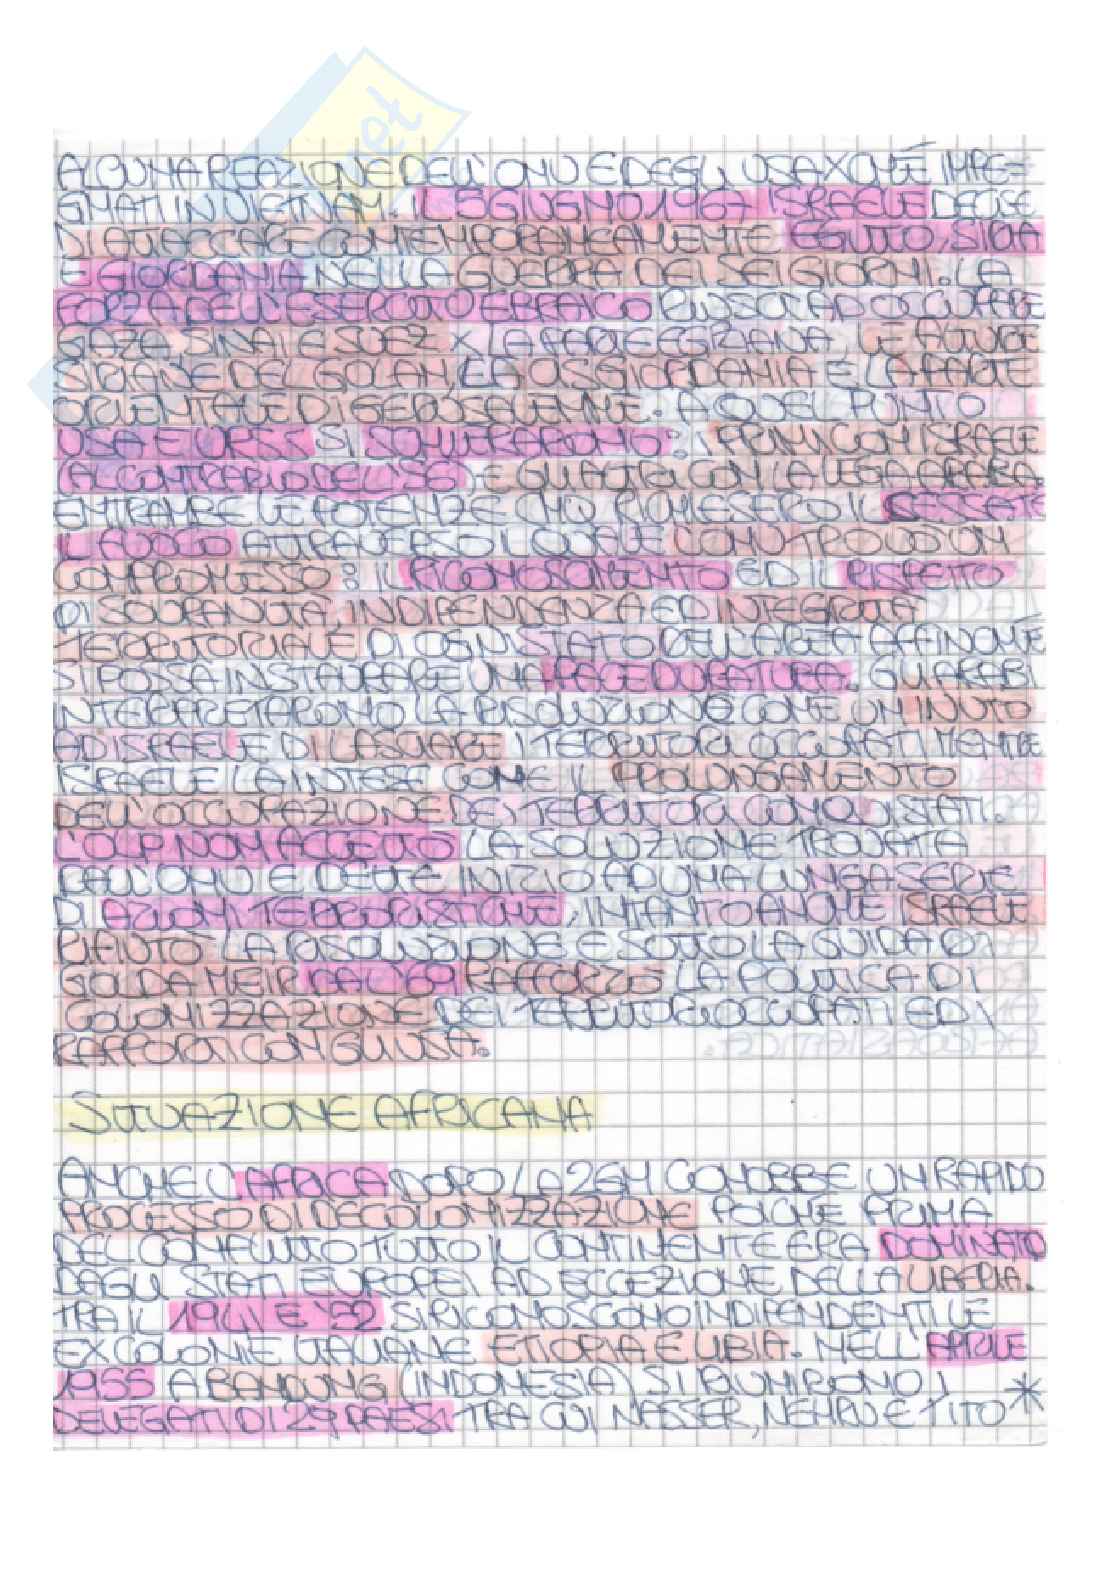 ALCUNA REAZIONE DELL'ONU E DEGLI USA XCHÉ IMPE=
GNATI IN VIETNAM. IL 5 GIUGNO 1967 ISRAELE DECISE
DI ATTACCARE CONTEMPORANEAMENTE EGITTO, SIRIA
E GIORDANIA NELLA GUERRA DEI SEI GIORNI. LA
FORZA DELL'ESERCITO EBRAICO RIUSCÌ AD OCCUPARE
GAZA SINAI E SUEZ X LA PARTE EGIZIANA LE ALTURE
SIRIANE DEL GOLAN LA CISGIORDANIA E LA PARTE
ORIENTALE DI GERUSALEMME. A QUEL PUNTO
USA E URSS SI SCHIERARONO: I PRIMI CON ISRAELE
AL CONTRARIO DEL '56, E GLI ALTRI CON LA LEGA ARABA.
ENTRAMBE LE POTENZE E ONU RICHIESERO IL CESSATE
IL FUOCO ATTRAVERSO IL QUALE L'ONU TROVÒ UN
COMPROMESSO: IL RICONOSCIMENTO ED IL RISPETTO
DI SOVRANITÀ, INDIPENDENZA ED INTEGRITÀ
TERRITORIALE DI OGNI STATO DELL'AREA AFFINCHÉ
SI POSSA INSTAURARE UNA PACE DURATURA. GLI ARABI
INTERPRETARONO LA RISOLUZIONE COME UN INVITO
AD ISRAELE DI LASCIARE I TERRITORI OCCUPATI MENTRE
ISRAELE LA INTESE COME IL PROLUNGAMENTO
DELL'OCCUPAZIONE DEI TERRITORI CONQUISTATI.
L'OLP NON ACCETTÒ LA SOLUZIONE TROVATA
DALL'ONU E DETTE INIZIO AD UNA LUNGA SERIE
DI AZIONI TERRORISTICHE. INTANTO ANCHE ISRAELE
RIFIUTÒ LA RISOLUZIONE E SOTTO LA GUIDA DI
GOLDA MEIR NAL '69 RAFFORZÒ LA POLITICA DI
COLONIZZAZIONE DEI TERRITORI OCCUPATI ED I
RAPPORTI CON GLI USA.
SITUAZIONE AFRICANA
ANCHE L'AFRICA DOPO LA 2GM CONOBBE UN RAPIDO
PROCESSO DI DECOLONIZZAZIONE POICHÉ PRIMA
DEL CONFLITTO TUTTO IL CONTINENTE ERA DOMINATO
DAGLI STATI EUROPEI AD ECCEZIONE DELLA LIBERIA.
TRA IL 1941 E '52 SI RICONOSCONO INDIPENDENTI LE
EX COLONIE ITALIANE ETIOPIA E LIBIA. NELL'APRILE
1955 A BANDUNG (INDONESIA) SI RIUNIRONO I
DELEGATI DI 29 PAESI TRA CUI NASSER, NEHRU E TITO *